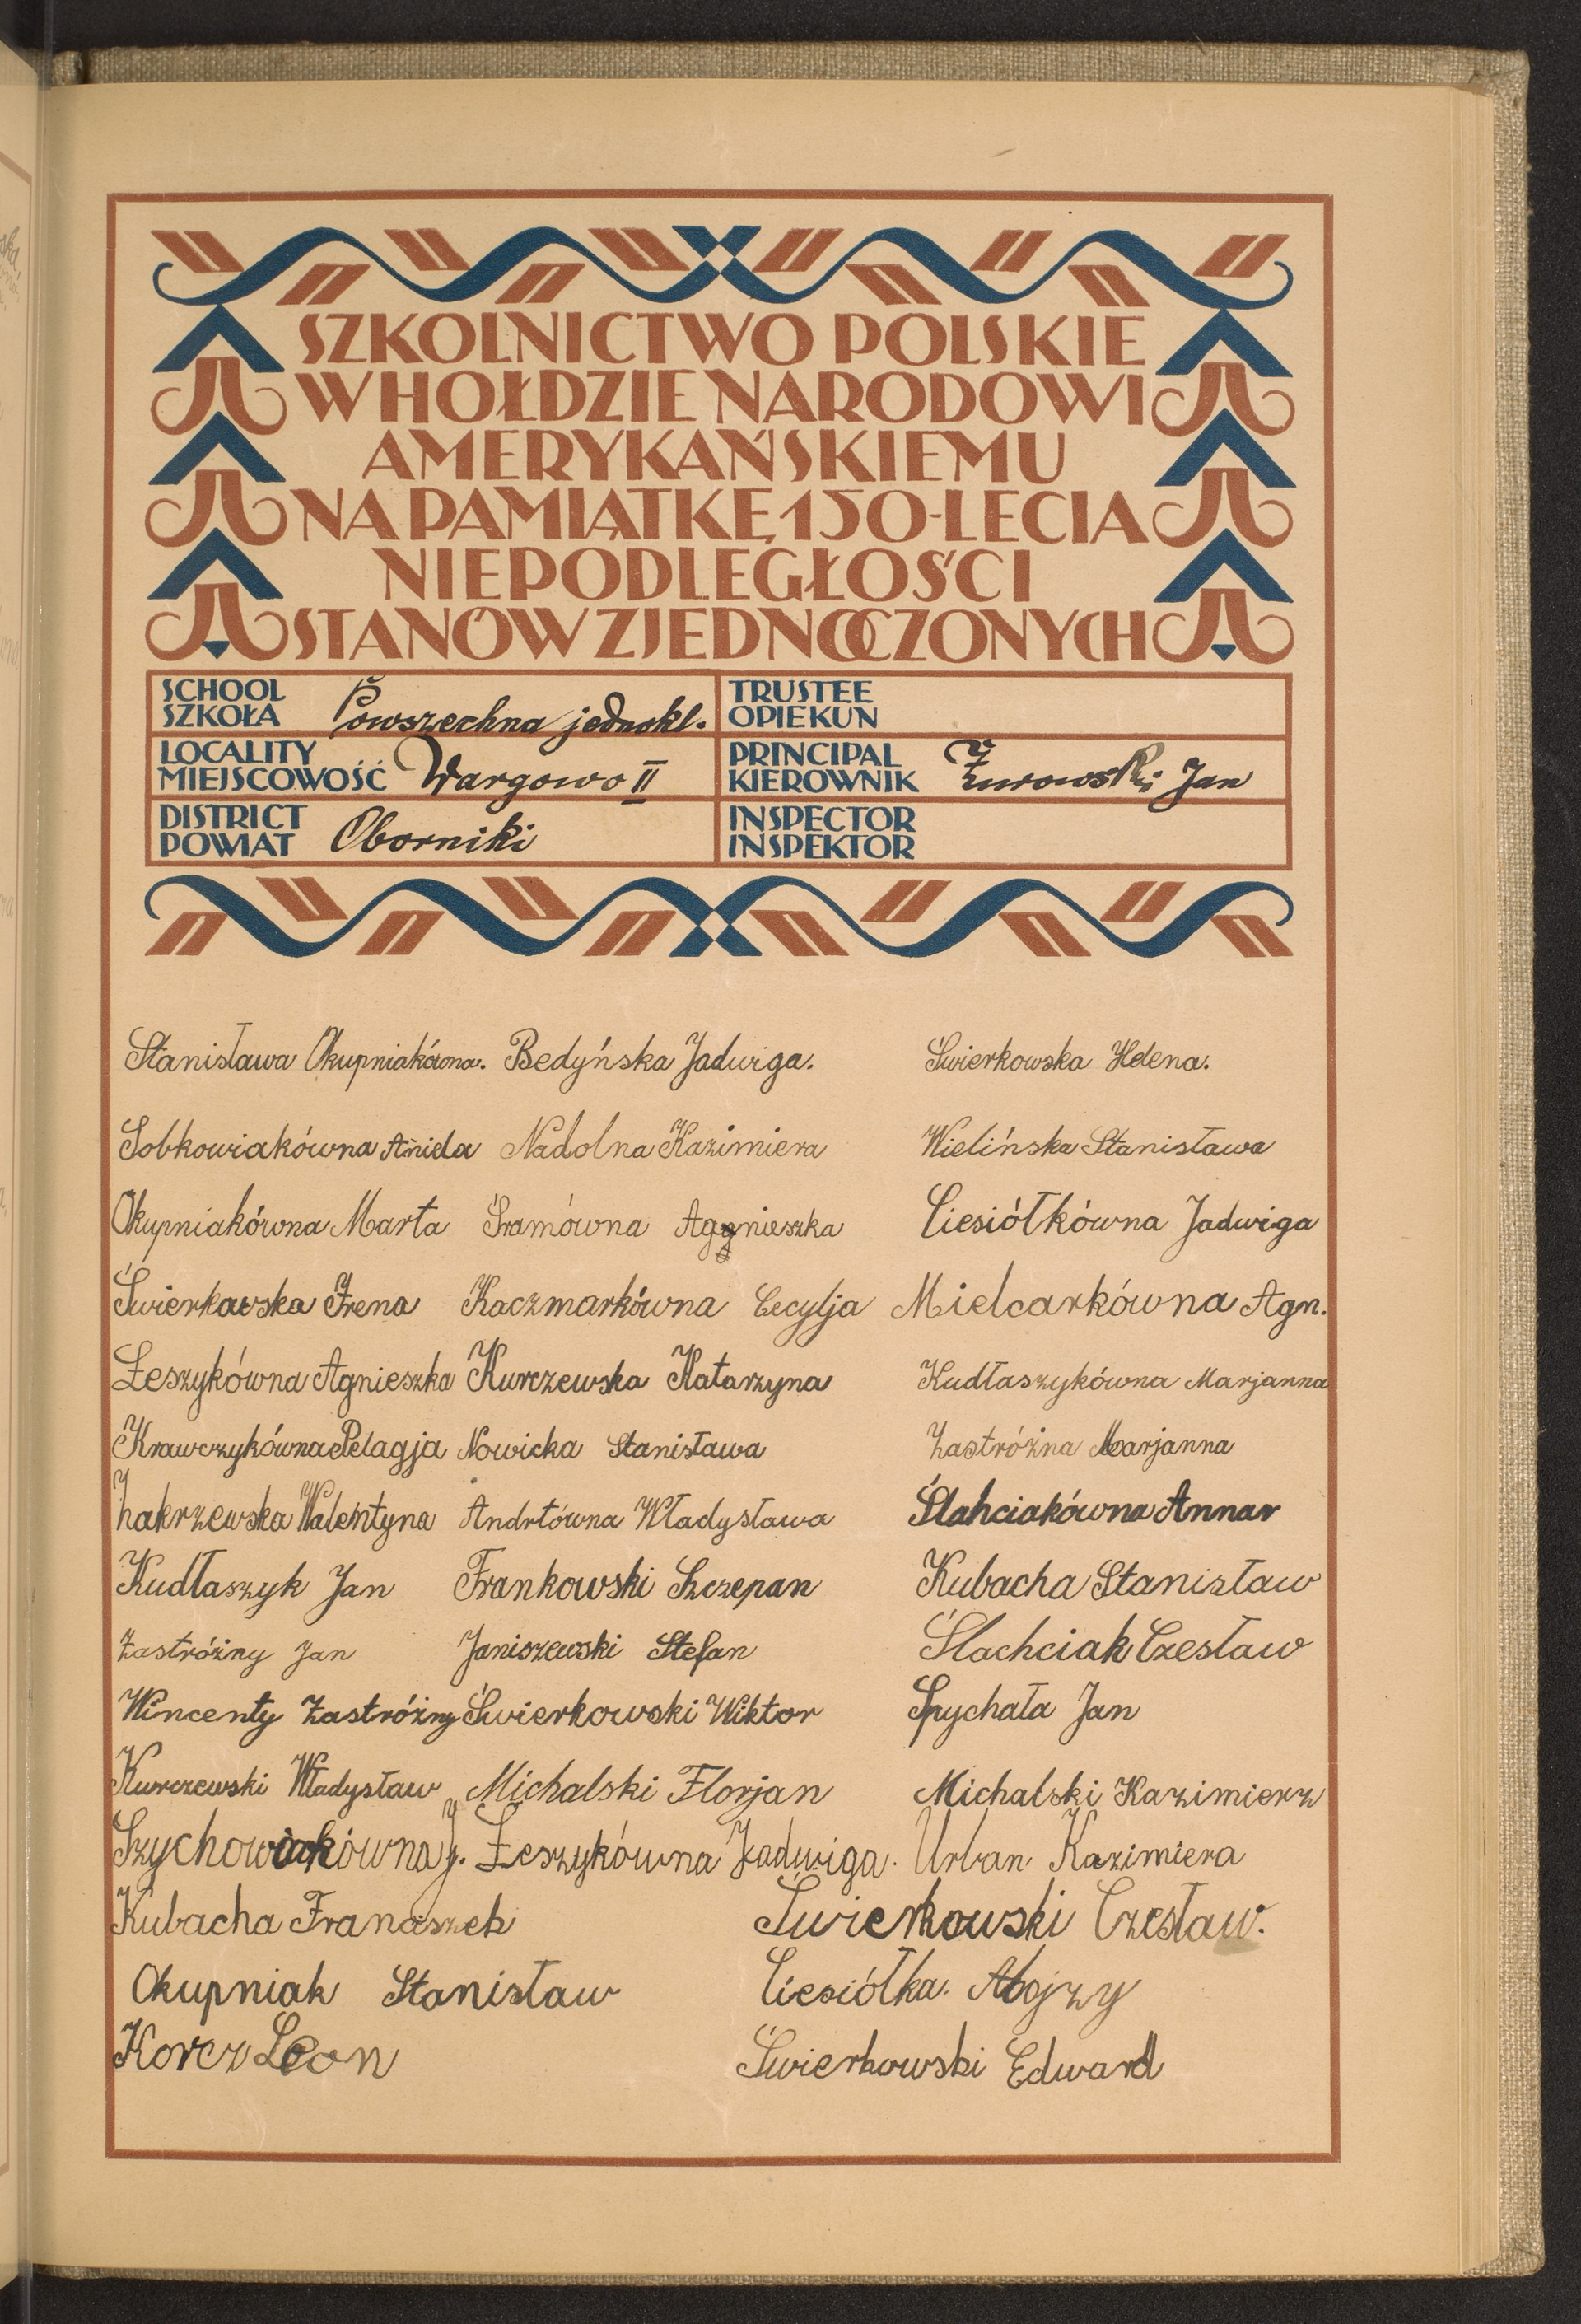 SZKOLNICTWO POLSKIE
W HOŁDZIE NARODOWI
AMERYKAŃSKIEMU
NA PAMIĄTKĘ 150-LECIA
NIEPODLEGŁOŚCI
STANÓW ZJEDNOCZONYCH
SCHOOL
SZKOŁA Powszechna jednokl.
TRUSTEE
OPIEKUN
LOCALITY
MIEJSCOWOŚĆ Wargowo II
PRINCIPAL
KIEROWNIK Żurowski Jan
DISTRICT
POWIAT Oborniki
INSPECTOR
INSPEKTOR
Stanisława Okupniakówna. Bedyńska Jadwiga. Świerkowska Helena.
Sobkowiakówna Aniela Nadolna Kazimiera Wielińska Stanisława
Okupniakówna Marta Śramówna Agnieszka Ciesiółkówna Jadwiga
Świerkowska Irena Kaczmarkówna Cecylja Mielcarkówna Agn.
Leszykówna Agnieszka Kurczewska Katarzyna Kudłaszykówna Marjanna
Krawczykówna Pelagja Nowicka Stanisława Zastróżna Marjanna
Zakrzewska Walentyna Andrtówna Władysława Ślahciakówna Anna
Kudłaszyk Jan Frankowski Szczepan Kubacha Stanisław
Zastróżny Jan Janiszewski Stefan Ślachciak Czesław
Wincenty Zastróżny Świerkowski Wiktor Spychała Jan
Kurczewski Władysław Michalski Florjan Michalski Kazimierz
Szychowiakówna J. Leszykówna Jadwiga. Urban Kazimiera
Kubacha Franciszek Świerkowski Czesław.
Okupniak Stanisław Ciesiółka. Alojzy
Korcz Leon Świerkowski Edward